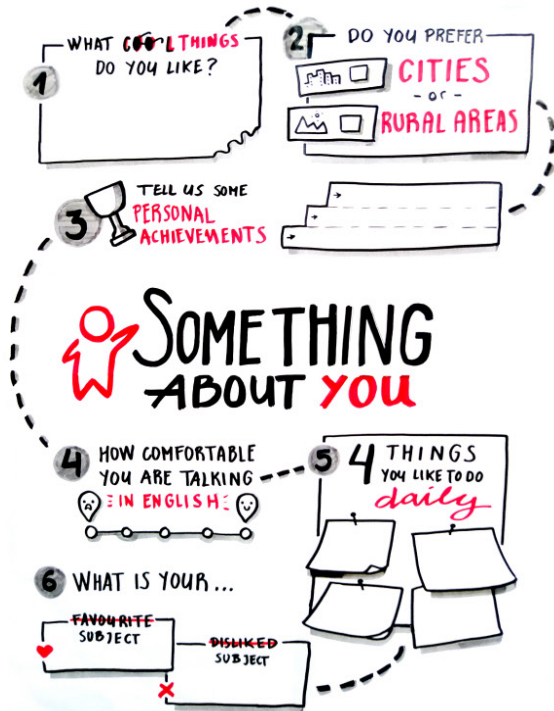 1
WHAT COOL THINGS
DO YOU LIKE?
2
DO YOU PREFER
CITIES
- or -
RURAL AREAS
3
TELL US SOME
PERSONAL
ACHIEVEMENTS
SOMETHING
ABOUT YOU
4
HOW COMFORTABLE
YOU ARE TALKING
IN ENGLISH
5
4 THINGS
YOU LIKE TO DO
daily
6
WHAT IS YOUR...
FAVOURITE
SUBJECT
DISLIKED
SUBJECT